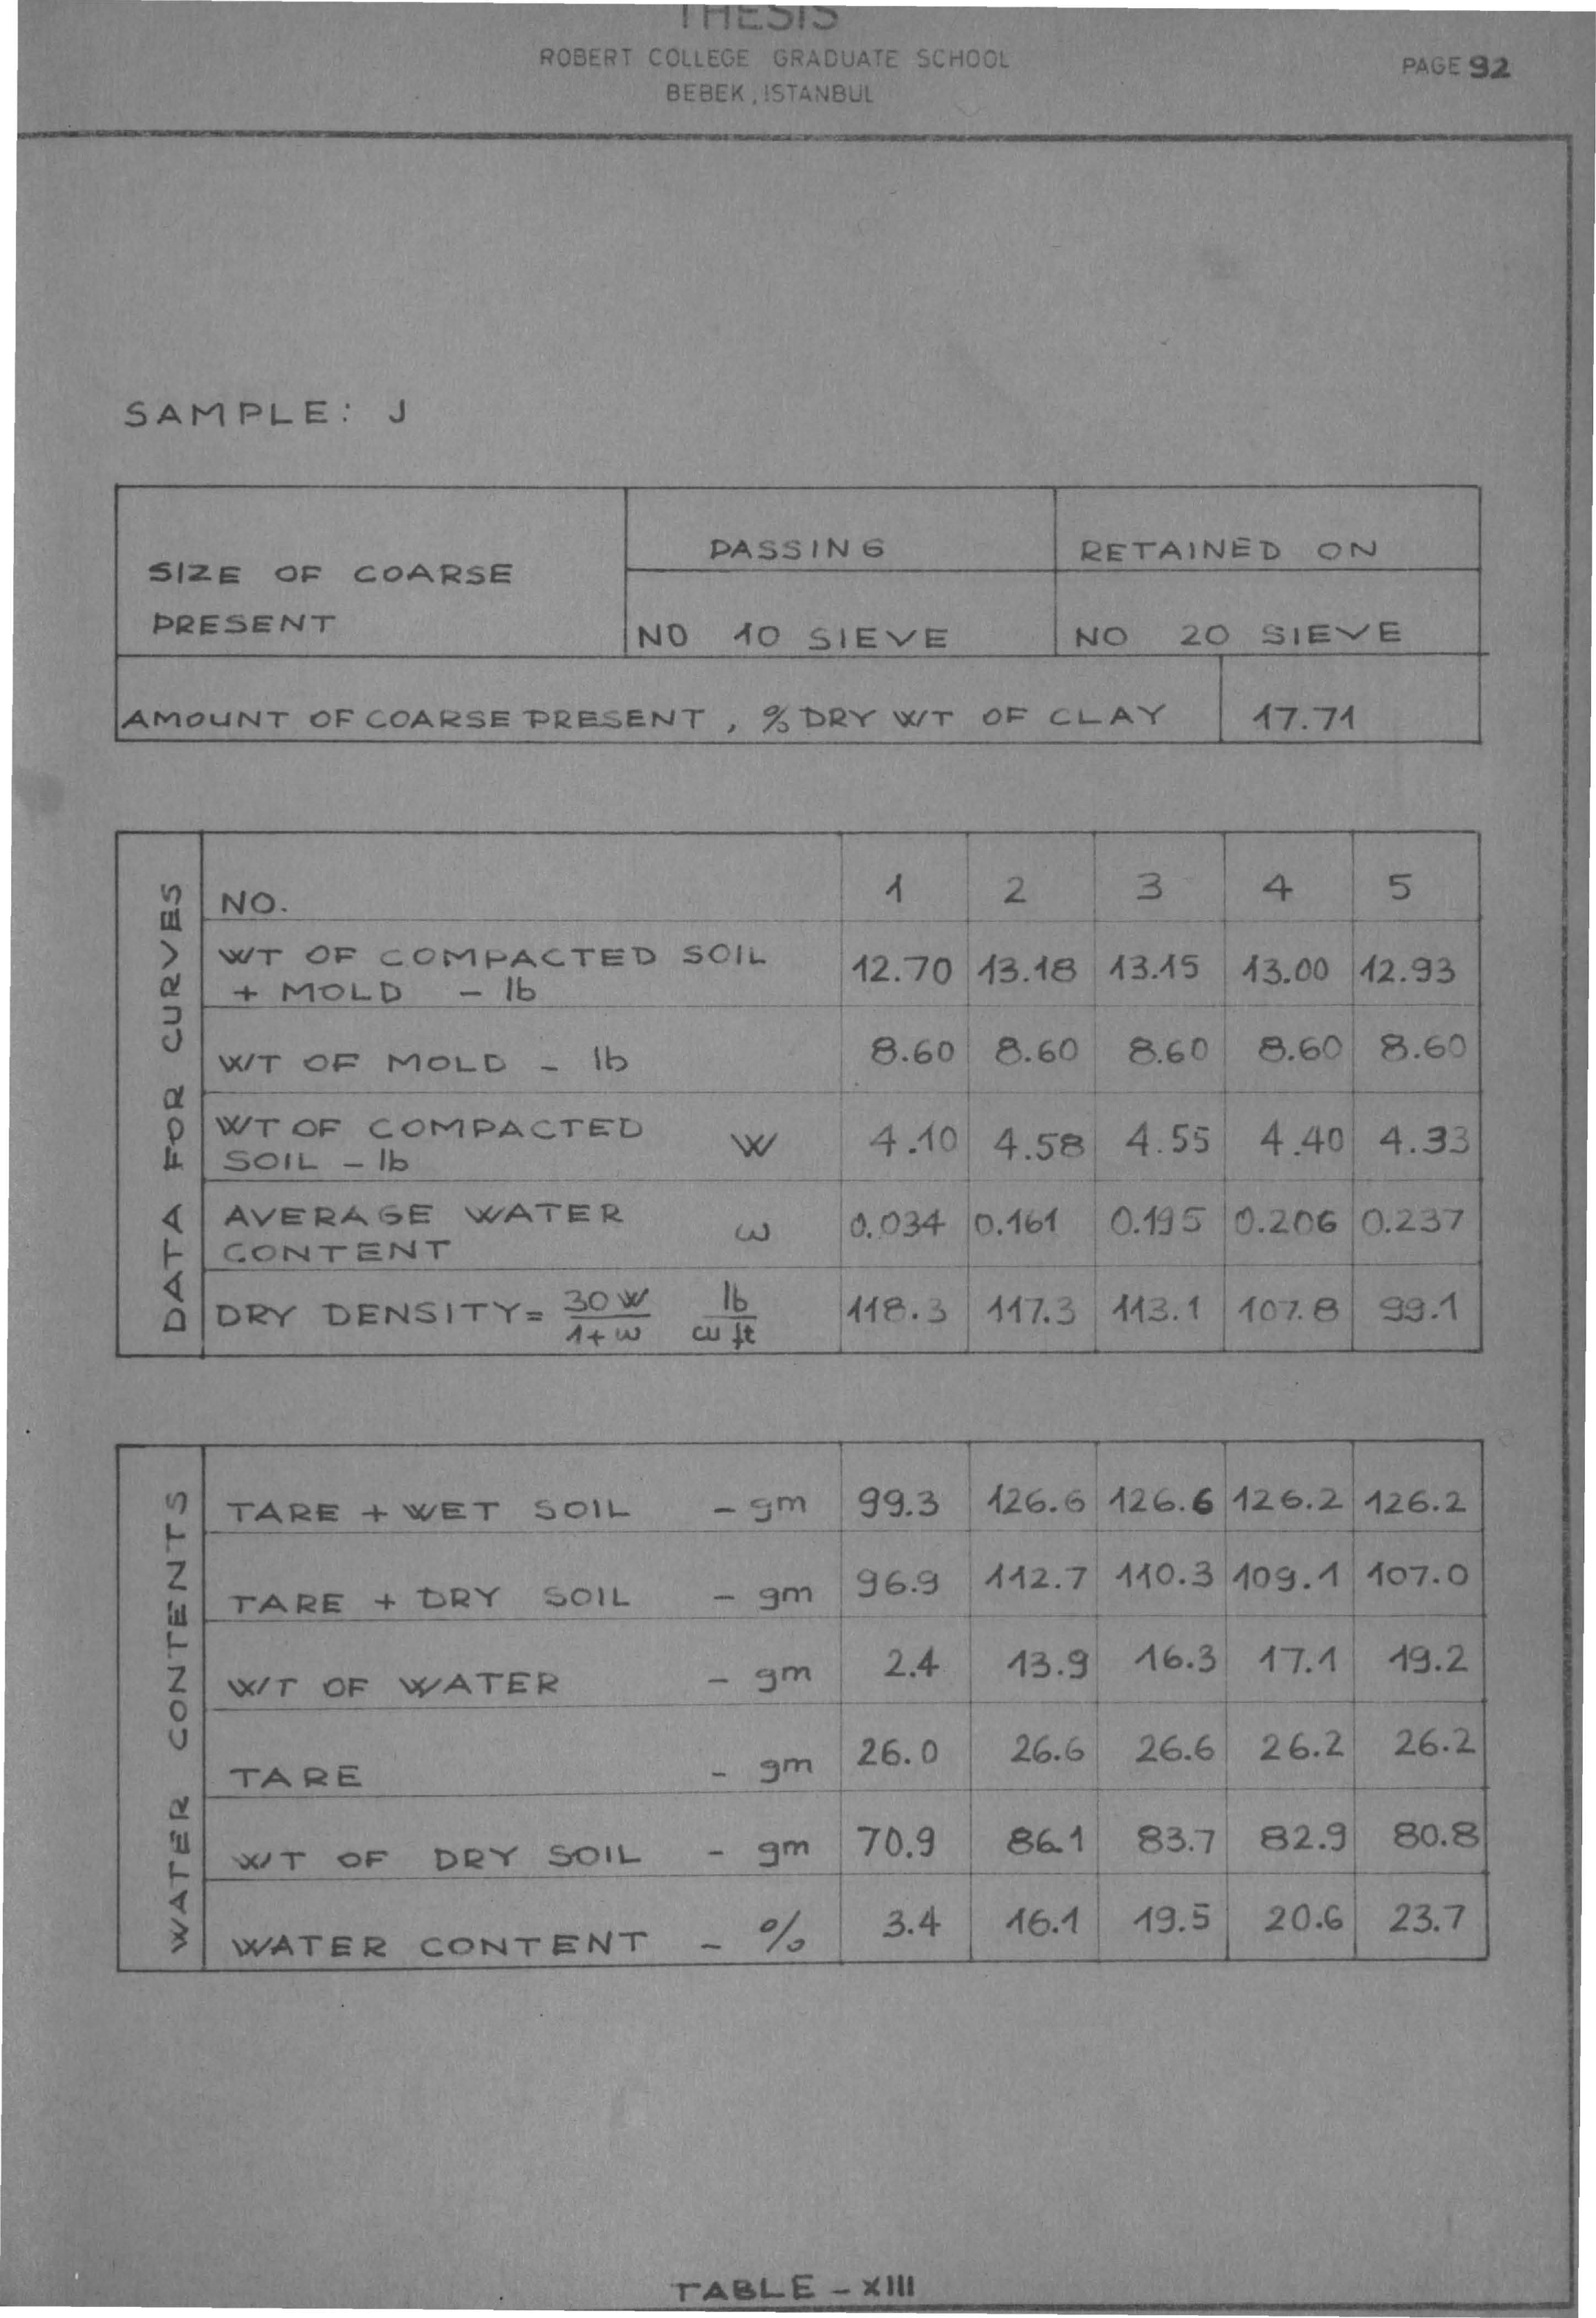 THESIS
ROBERT COLLEGE GRADUATE SCHOOL
PAGE 92
BEBEK, ISTANBUL
SAMPLE: J
SIZE OF COARSE PRESENT PASSING RETAINED ON
NO 10 SIEVE NO 20 SIEVE
AMOUNT OF COARSE PRESENT, % DRY WT OF CLAY 17.71
DATA FOR CURVES
NO. 1 2 3 4 5
WT OF COMPACTED SOIL
+ MOLD - lb 12.70 13.18 13.15 13.00 12.93
WT OF MOLD - lb 8.60 8.60 8.60 8.60 8.60
WT OF COMPACTED
SOIL - lb W 4.10 4.58 4.55 4.40 4.33
AVERAGE WATER
CONTENT ω 0.034 0.161 0.195 0.206 0.237
DRY DENSITY = 30W/1+ω lb/cu ft 118.3 117.3 113.1 107.8 99.1
WATER CONTENTS
TARE + WET SOIL - gm 99.3 126.6 126.6 126.2 126.2
TARE + DRY SOIL - gm 96.9 112.7 110.3 109.1 107.0
WT OF WATER - gm 2.4 13.9 16.3 17.1 19.2
TARE - gm 26.0 26.6 26.6 26.2 26.2
WT OF DRY SOIL - gm 70.9 86.1 83.7 82.9 80.8
WATER CONTENT - % 3.4 16.1 19.5 20.6 23.7
TABLE - XIII